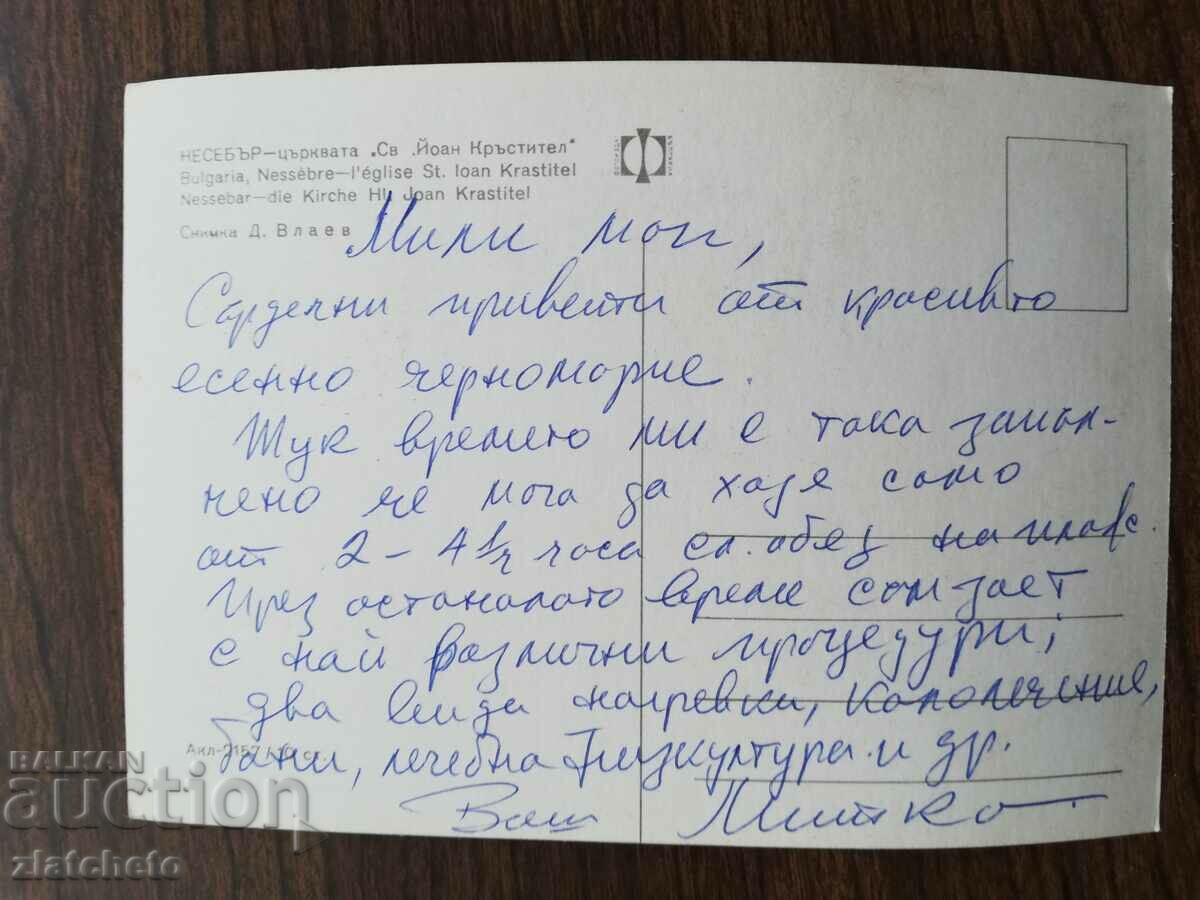 НЕСЕБЪР—църквата „Св .Йоан Кръстител"
Bulgaria, Nessèbre—l'église St. Ioan Krastitel
Nessebar—die Kirche Hl. Joan Krastitel
Снимка Д. Влаев
Мили мои,
Сърдечни привети от красивото
есенно черноморие.
Тук времето ми е така запъл-
нено че мога да ходя само
от 2 – 4 1/2 часа сл. обяд на плаж.
През останалото време съм зает
с най различни процедури;
два вида нагревки, калолечение,
бани, лечебна физкултура и др.
Ваш Митко
BALKAN
auction
zlatcheto